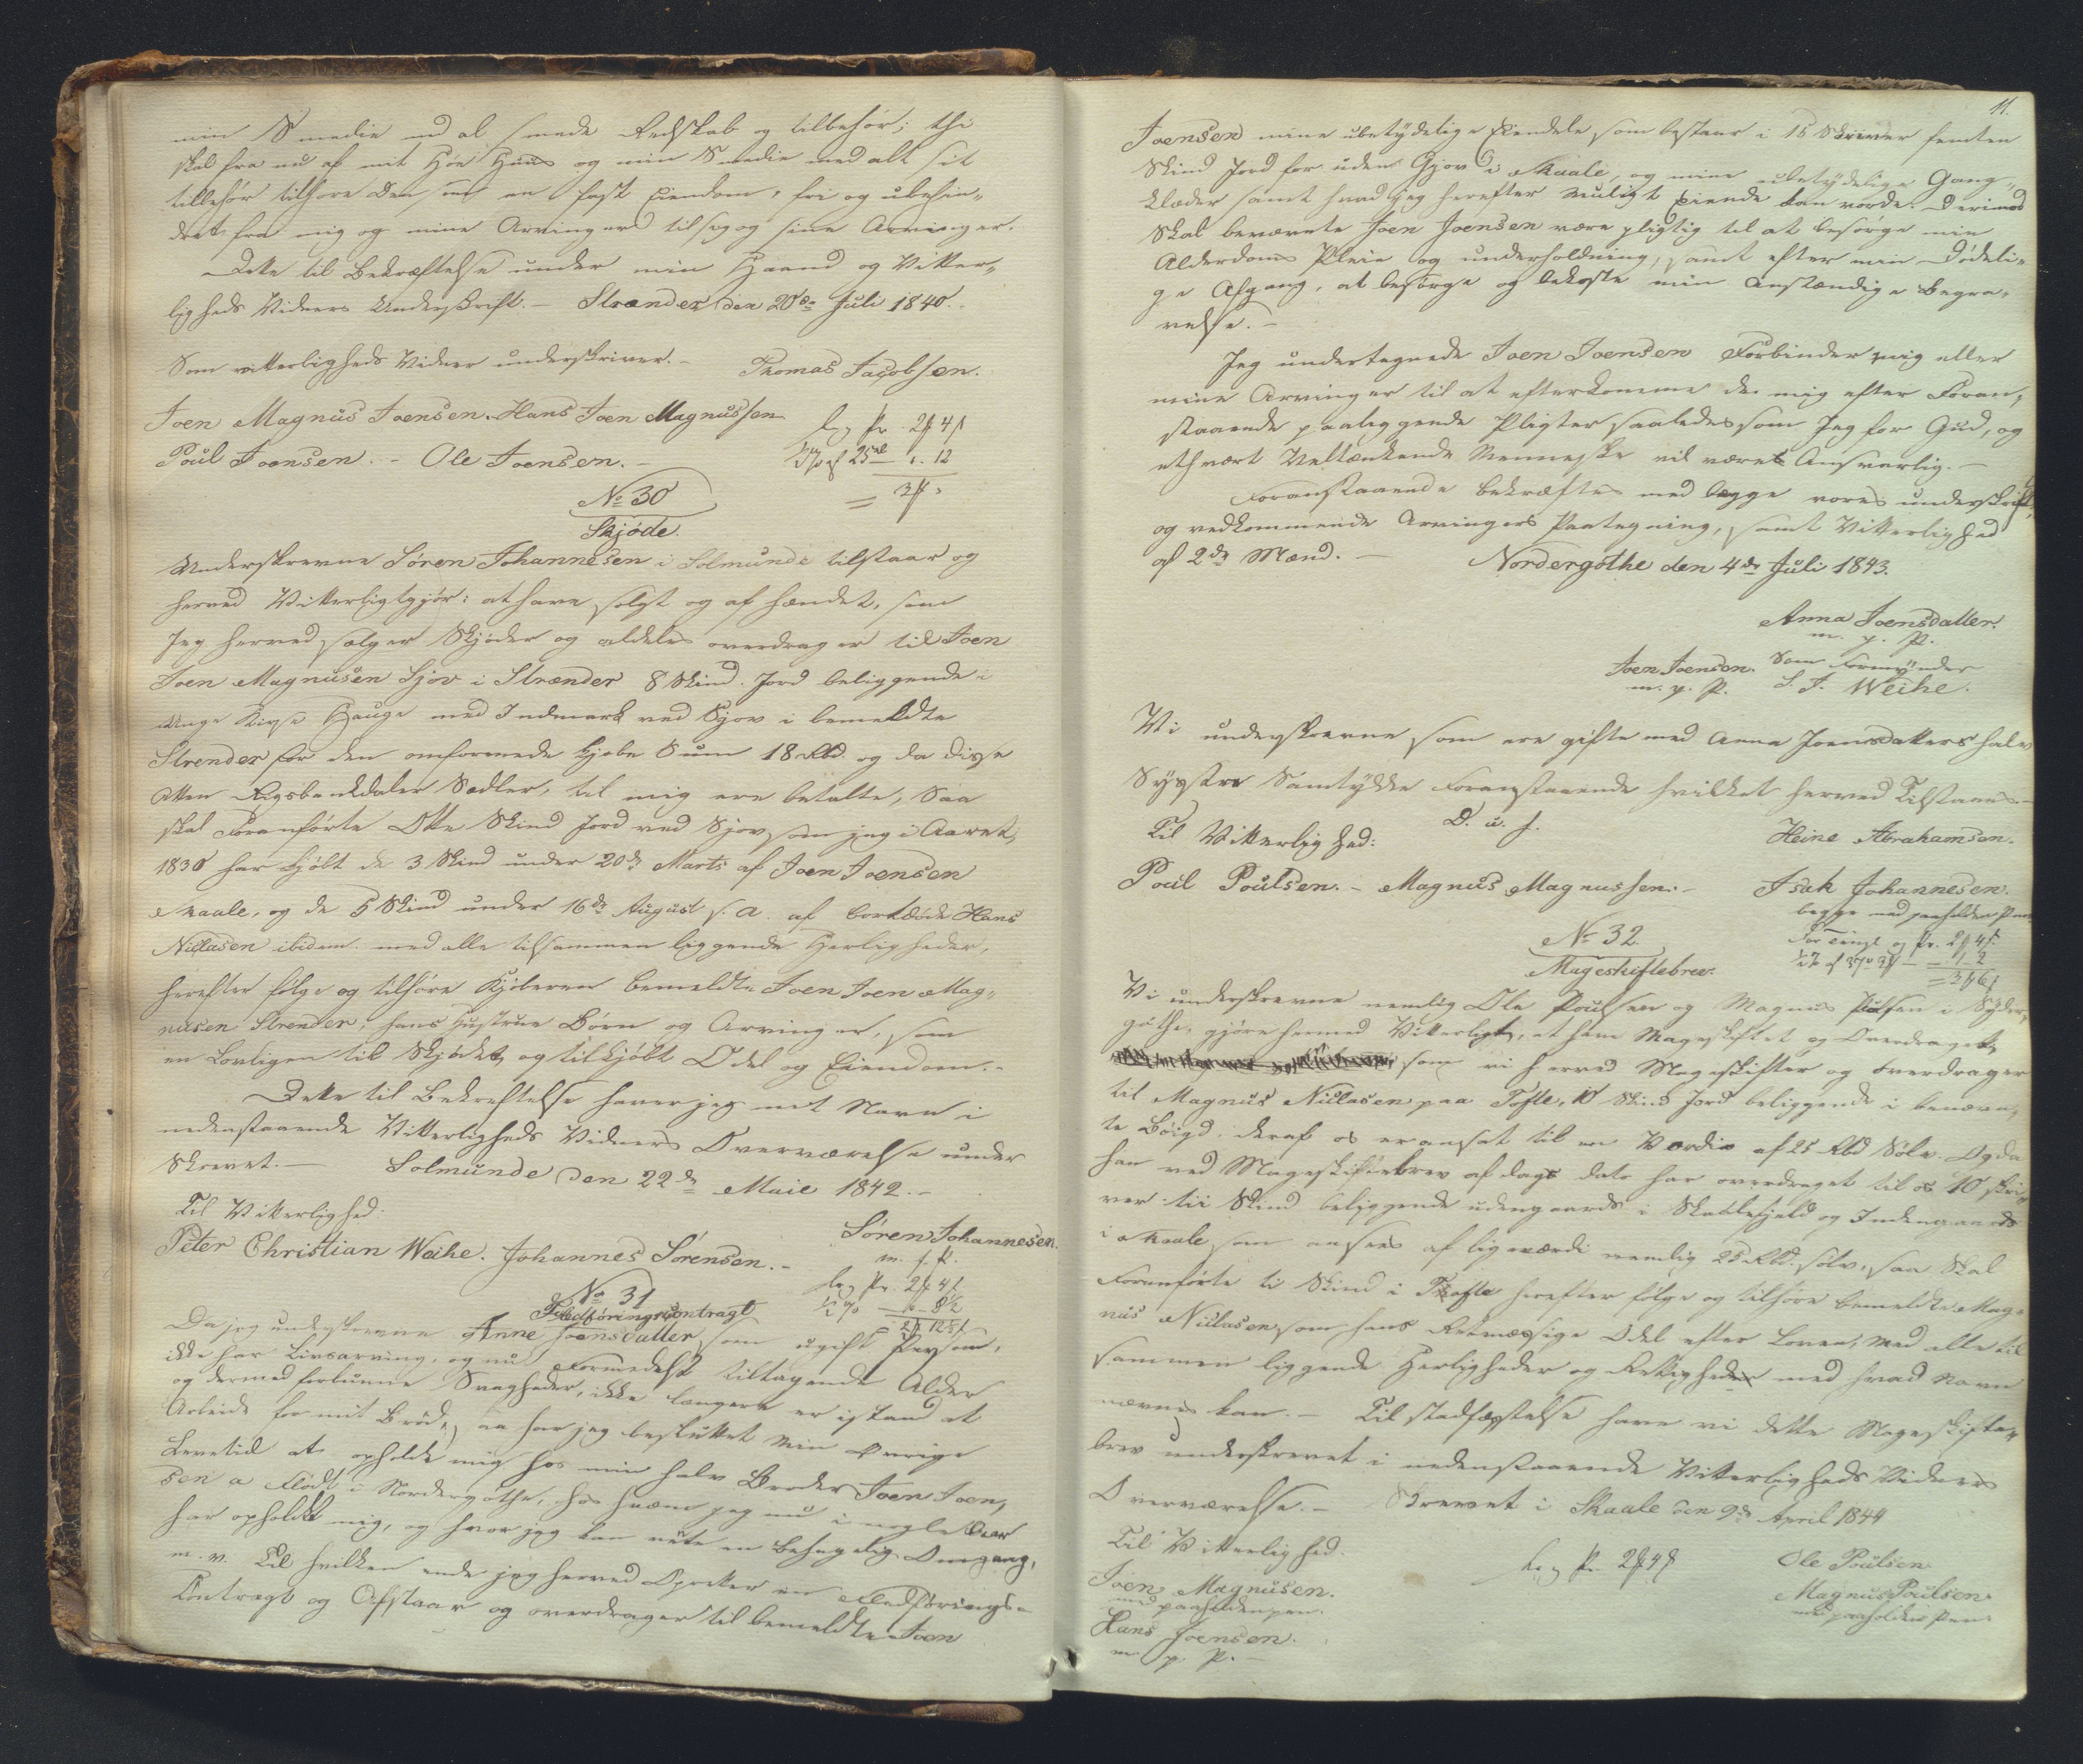 min Smedie med al smede Redskab og tilbehör; thi
skal fra nu af mit Höe Huus og min Smedie med alt sit
tillehör tilhöre den som en fast Eiendom, fri og ubehin-
dret fra mig og mine Arvinger til og sine Arvinger.
Dette til Bekræftelse under min Haand og Vitter-
ligheds Vidners Underskrift. – Strænder den 20de Juli 1840.
Som vitterligheds Vidner underskriver. – Thomas Jacobsen.
Joen Magnus Joensen. Hans Joen Magnussen
Poul Joensen. – Ole Joensen. –
No 30
Skjöde.
Underskrevne Sören Johannesen i Solmunde tilstaar og
herved Vitterligtgjör: at have solgt og afhændet, som
Jeg herved sælger Skjöder og aldeles overdrager til Joen
Joen Magnusen Sjov i Strænder 8 Skind Jord beliggende i
Hauge med Indmark ved Sjov i bemeldte
Strender for den omforenede Kjöbe Sum 18 Rbd. og da disse
Atten Rigsbankdaler Sedler, til mig ere betalte, Saa
skal Foranförte Otte Skind Jord ved Sjov som jeg i Aaret
1830 har kjöbt de 3 Skind under 20de Marts af Joen Joensen
Skaale, og de 5 Skind under 16de August s. a. af bortdöde Hans
Niclasen ibidem. med alle tilsammen liggende Herligheder,
herefter fölge og tilhöre Kjöberen bemeldte Joen Joen Mag-
nusen Strender, hans Hustrue Börn og Arvinger, som
en Lovligen til Skjödet og tilkjöbt Odel og Eiendom. –
Dette til Bekreftelse haver jeg mit Navn i
nedenstaaende Vitterligheds Vidners Overværelse under
Skrevet. – Solmunde den 22de Maie 1842. –
Til Vitterlighed:
Sören Johannesen.
Peter Christian Weihe. Johannes Sörensen. –
No 31
Fledföringscontragt
Da jeg underskrevne Anne Joensdatter som ugift Person,
ikke har Livsarving, og nu Formedelst tiltagende Alder
og dermed forbunne Svagheder, ikke længere er istand at
Arbeide for mit Bröd, saa har jeg besluttet min övrige
Levetid at opholde mig hos min halv Broder Joen Joen-
sen a Flödt i Nordergöthe, hos hvem jeg nu i nogle Aar
har opholdt mig, og hvor jeg kan nyte en behagelig Omgang,
m. v. Til hvilken ende jeg herved Opretter en Fledförings-
Contragt og Afstaar og overdrager til bemeldte Joen
11.
Joensen mine ubetydelige Eiendele som bestaar i 15 Skriver femten
Skind Jord for uden Gjov i Skaale, og mine ubetydelige Gang-
klæder samt hvad jeg herefter muligt Eiende kan vorde. Derimod
Skal benævnte Joen Joensen være pligtig til at besörge min
Alderdoms Pleie og underholdning, samt efter min Dödeli-
ge Afgang, at besörge og bekoste min Anstændige Begra-
velse. –
Jeg undertegnede Joen Joensen Forbinder mig eller
mine Arvinger til at efterkomme de mig efter Foran-
staaende paaliggende Pligter saaledes som Jeg for Gud, og
ethvert Veltænkende Menneske vil været Ansvarlig. –
Foranstaaende bekræftes med begge vores underskrift,
og vedkommende Arvingers Paategning, samt Vitterlighed
af 2de Mænd. – Nordergöthe den 4de Juli 1843.
Anna Joensdatter.
m. p. P.
Joen Joensen. Som Formynder
m. p. P. S. J. Weihe.
Vi underskrevne som ere gifte med Anna Joensdatters halv
Systre Samtykke Foranstaaende hvilket herved Tilstaaes –
D. u. s.
Til Vitterlighed: Heine Abrahamsen.
Poul Poulsen. – Magnus Magnussen. – Isak Johannesen.
begge med paaholden Pen
No 32.
Mageskiftebrev.
Vi underskrevne nemlig Ole Poulsen og Magnus Poulsen i Syder-
göthe, gjöre hermed Vitterligt, at have Mageskiftet og Overdraget,
som vi herved Mageskifter og overdrager
til Magnus Niclasen paa Tofte, 10 Skind Jord beliggende i benævn-
te Böigd, deraf os er ansat til en Verdie af 25 Rbd Sölv. Og da
han ved Mageskiftebrev af dags dato har overdraget til os 10 skri-
ver tii Skind beliggende udengaards i Skaalefjeld og Indengaards
i Skaale som ansees af lige værdi nemlig 25 Rbd. sölv, saa Skal
Foranförte ti Skind i Tofte herefter fölge og tilhöre bemeldte Mag-
nus Niclasen som hans Retmæssige Odel efter Loven, med alle til
sammen liggende Herligheder og Rettigheder med hvad Navn
nævnes kan. – Til stadfæstelse have vi dette Mageskifte-
brev underskrevet i nedenstaaende Vitterligheds Vidners
Overværelse. – Skrevet i Skaale den 9de April 1844
Til Vitterlighed.
Ole Poulsen
Joen Magnusen. Magnus Poulsen
med paaholden pen. med paaholden Pen
Hans Joensen.
m. p. P. –